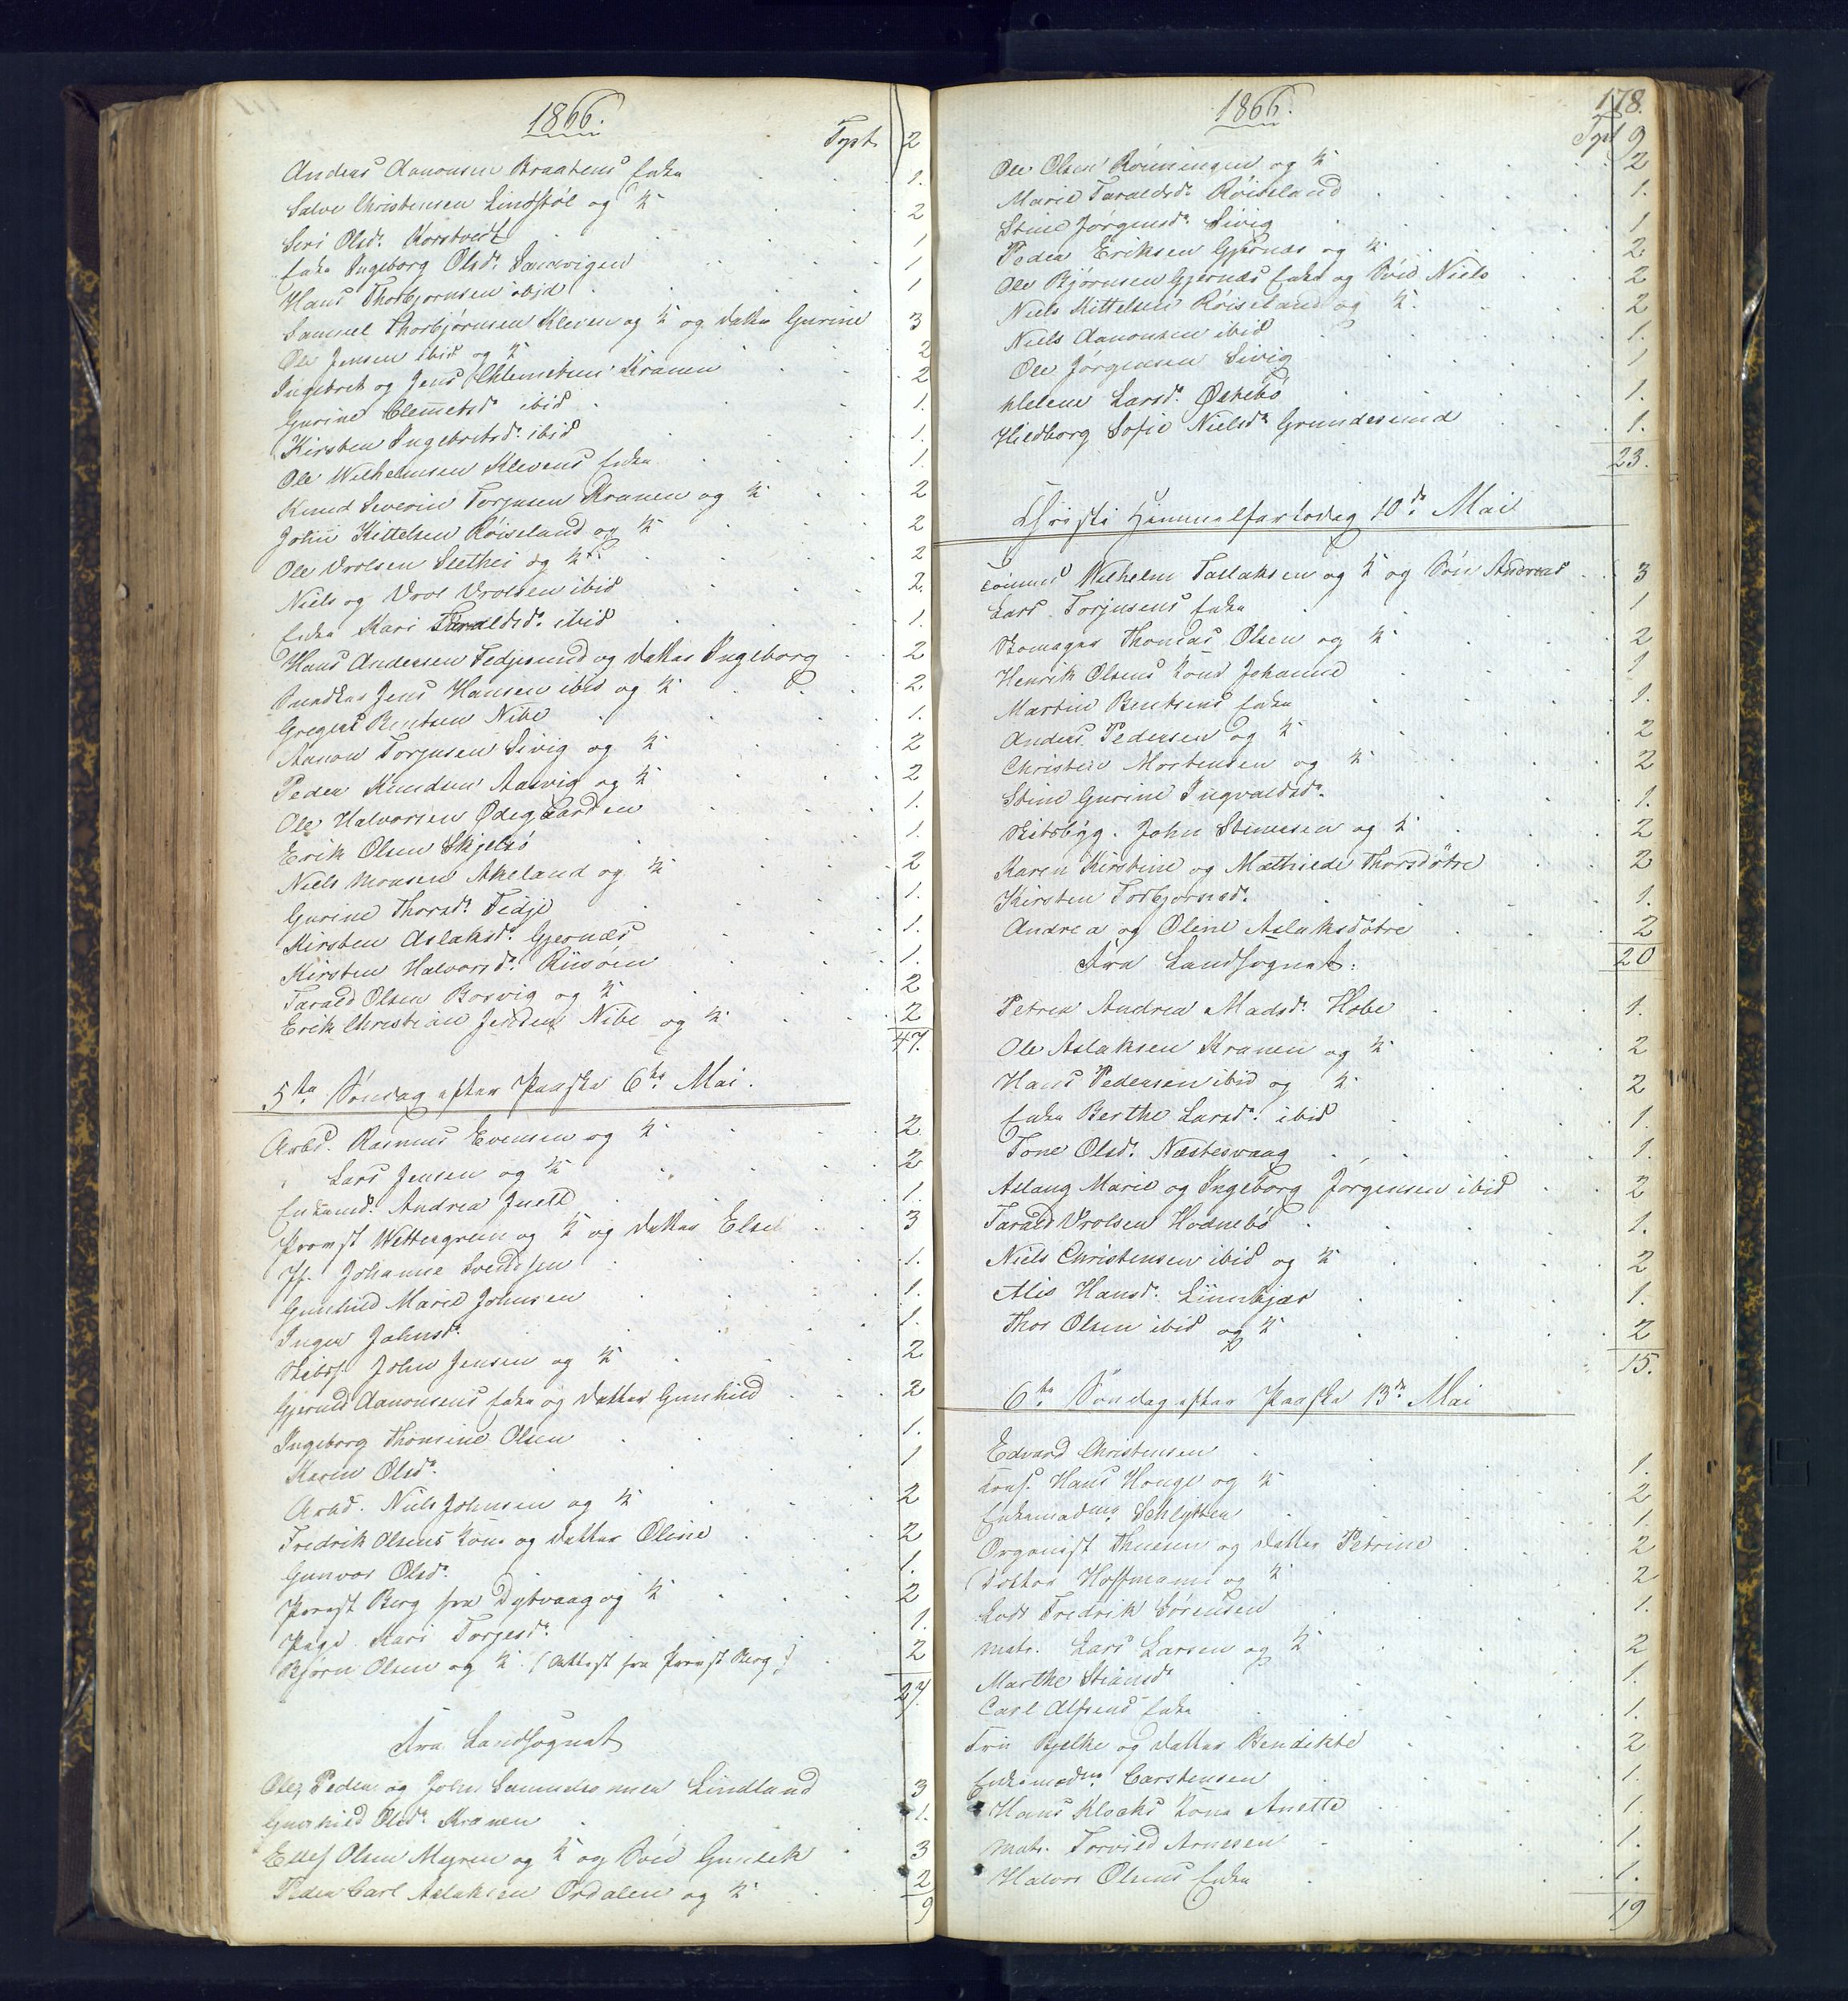 1866.
Tpt. 2
Anders Aanonsen Braatens Enke 1.
Salve Christensen Lindstøl og K. 2
Siri Olsd. Korstvedt 1
Enke Ingeborg Olsd. Sandvigen 1
Hans Thorbjørnsen ibid 1
Samuel Thorbjørnsen Kleven og K. og Datter Gurine 3
Ole Jensen ibid og K. 2
Ingebret og Jens Clemetsen Kranen 2
Gurine Clemetsd. ibid 1.
Kirsten Ingebretsd. ibid 1.
Ole Wilhelmsen Klevens Enke 1.
Knud Severin Torjusen Kranen og K. 2
John Kittelsen Røiseland og K. 2
Ole Vrolsen Sletthei og K. 2
Niels og Vrol Vrolsen ibid 2.
Enke Kari Taraldsd. ibid 1.
Hans Andersen Tedjesund og Datter Ingeborg 2
Jens Hansen ibid og K. 2
Gregers Bentsen Nibe 1.
Aanon Torjusen Sivig og K. 2
Peder Knudsen Aasvig og K. 2
Ole Halvorsen Ødegaarden 1.
Erik Olsen Skjelsø 1.
Niels Monsen Akeland og K. 2
Gurine Thorsd. Tedje 1.
Kirsten Aslaksd. Gjernæs 1.
Kirsten Halvorsd. Riisøen 1.
Tarald Olsen Borvig og K. 2
Erik Christian Jensen Nibe og K. 2
47.
5te Søndag efter Paaske 6te Mai.
Arbd. Rasmus Evensen og K. 2
" Lars Jensen og K. 2
Andrea Juell 1.
Provst Wettergreen og K. og Datter Elise 3
Jf. Johanne Svendsen 1.
Gunhild Marie Johnsen 1.
Inger Johnsd. 1.
Skibsf. John Jensen og K. 2
Gjeruld Aanonsens Enke og Datter Gunhild 2
Ingeborg Thomine Olsen 1.
Karen Olsd. 1
Arbd. Niels Johnsen og K. 2
Fredrik Olsens Kone og Datter Oline 2
Gunvor Olsd. 1.
Provst Berg fra Dybvaag og K. 2
Pige Kari Torjesd. 1.
Bjørn Olsen og K. (Attest fra Provst Berg) 2
27.
Fra Landsognet
Ole, Peder og John Samuelsønner Lindland 3
Gunhild Olsd. Kranen 1.
Ellef Olsen Myren og K. og Søn Gunlek 3
Peder Carl Aslaksen Ordalen og K. 2
9
1866.
178.
Tpt 9
Ole Olsen Rønningen og K. 2
Marie Taraldsd. Røiseland 1.
Stine Jørgensd. Sivig 1
Peder Eriksen Gjernæs og K. 2
Ole Bjørnsen Gjernæs Enke og Søn Niels 2
Niels Kittelsen Røiseland og K. 2
Niels Aanonsen ibid 1.
Ole Jørgensen Sivig 1
Helene Larsd. Østebø 1.
Hiedborg Sofie Nielsd. Grundesund 1.
23.
Christi Himmelfartsdag 10de Mai
Wilhelm Tallaksen og K. og Søn Andreas 3
Lars Torjusens Enke 1
Skomager Thomas Olsen og K. 2
Henrik Olsens Kone Johanne 1
Martin Bentsens Enke 1.
Anders Pedersen og K. 2
Christen Mortensen og K. 2
Stine Gurine Ingvaldsd. 1.
Skibsbyg. John Stenersen og K. 2
Karen Kirstine og Mathilde Thorsdøtre 2
Kirsten Torbjørnsd. 1.
Andrea og Oline Aslaksdøtre 2
20
Fra Landsognet:
Petrea Andrea Madsd. Hobe 1.
Ole Aslaksen Kranen og K. 2
Hans Pedersen ibid og K. 2
Enke Berthe Larsd. ibid 1.
Tone Olsd. Næstesvaag 1.
Aslaug Marie og Ingeborg Jørgensen ibid 2
Tarald Vrolsen Hodnebø 1.
Niels Christensen ibid og K. 2
Alis Hansd. Linnkjær 1.
Thor Olsen ibid og K. 2
15.
6te Søndag efter Paaske 13de Mai
Edvard Christensen 1.
Hans Houge og K. 2
Enkemadme. Schlytter 1.
Organist Thuesen og Datter Petrine 2
Doktor Hoffmann og K. 2
Lods Fredrik Sørensen 1.
Matr. Lars Larsen og K. 2
Marthe Stiansd. 1.
Carl Alfsens Enke 1.
Fru Bjelke og Datter Bendikte 2
Enkemadme. Carstensen 1.
Hans Klocks Kone Anette 1.
Matr. Torvild Arnesen 1.
Halvor Olsens Enke 1.
19